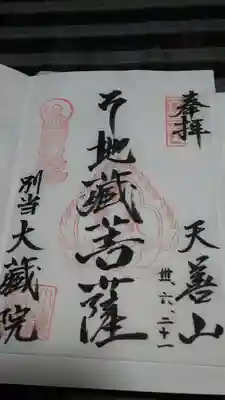 奉拝
天善山
卅、六、二十一
地藏菩薩
別当大藏院